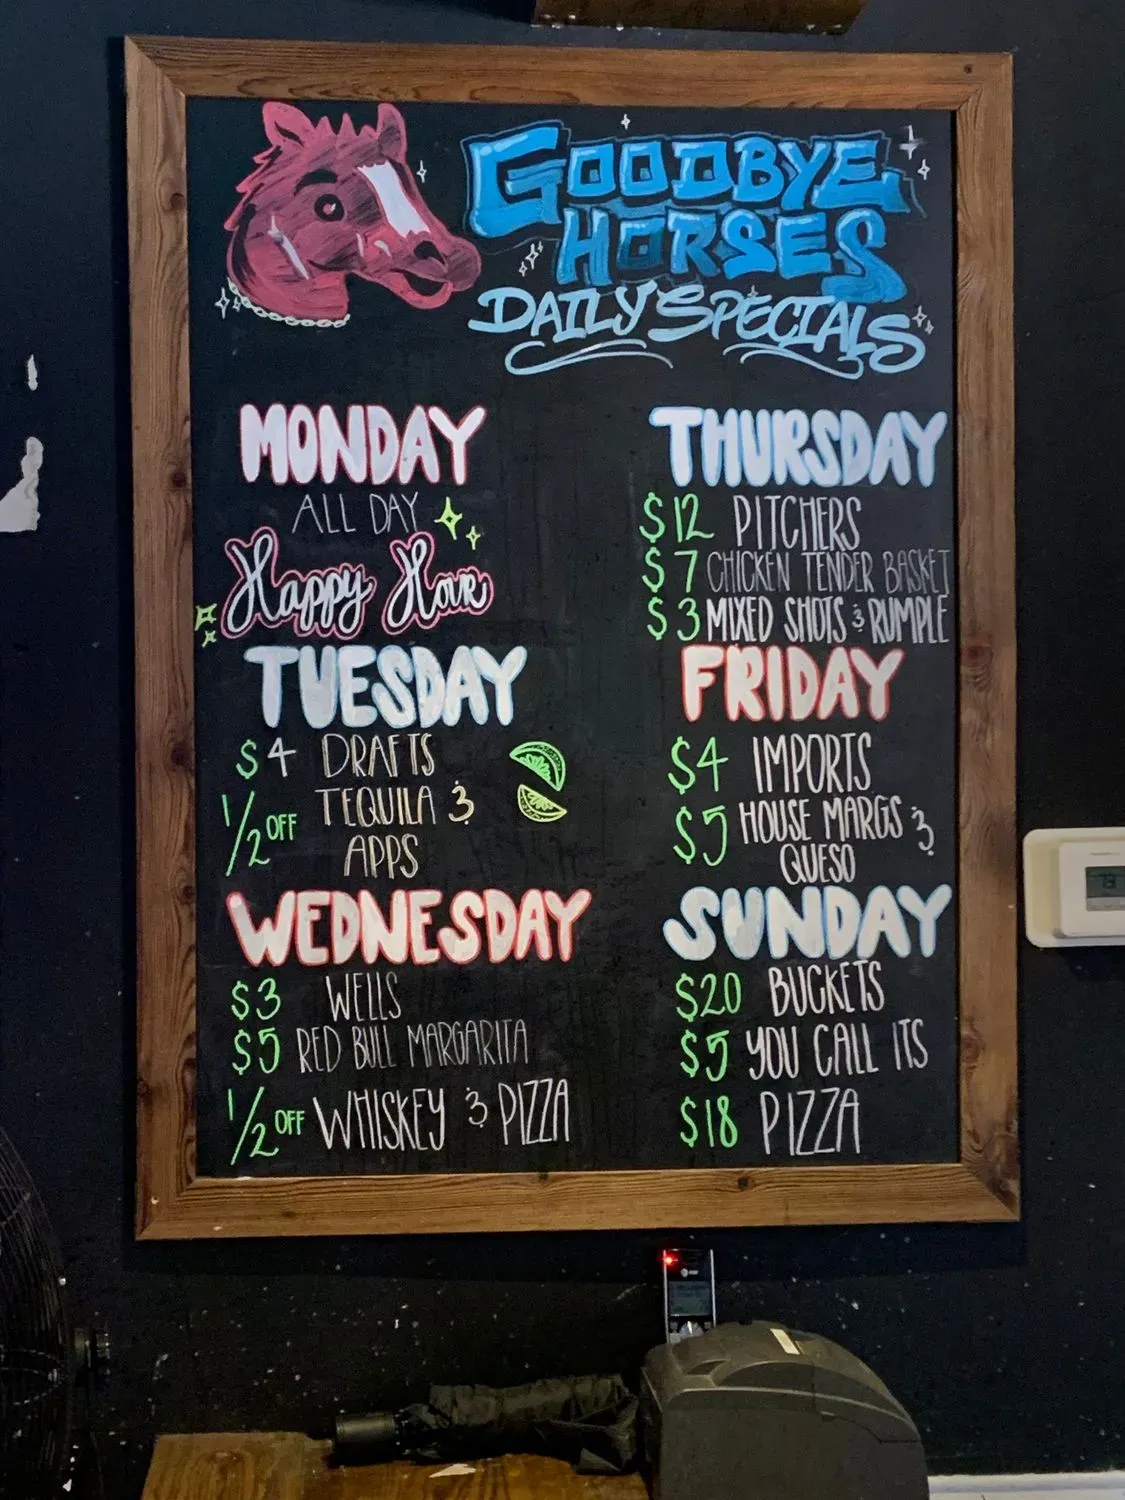 GOODBYE
HORSES
DAILY SPECIALS
MONDAY
ALL DAY
Happy Hour
TUESDAY
$4 DRAFTS
1/2 OFF TEQUILA &
APPS
WEDNESDAY
$3 WELLS
$5 RED BULL MARGARITA
1/2 OFF WHISKEY & PIZZA
THURSDAY
$12 PITCHERS
$7 CHICKEN TENDER BASKET
$3 MIXED SHOTS & RUMPLE
FRIDAY
$4 IMPORTS
$5 HOUSE MARGS &
QUESO
SUNDAY
$20 BUCKETS
$5 YOU CALL ITS
$18 PIZZA